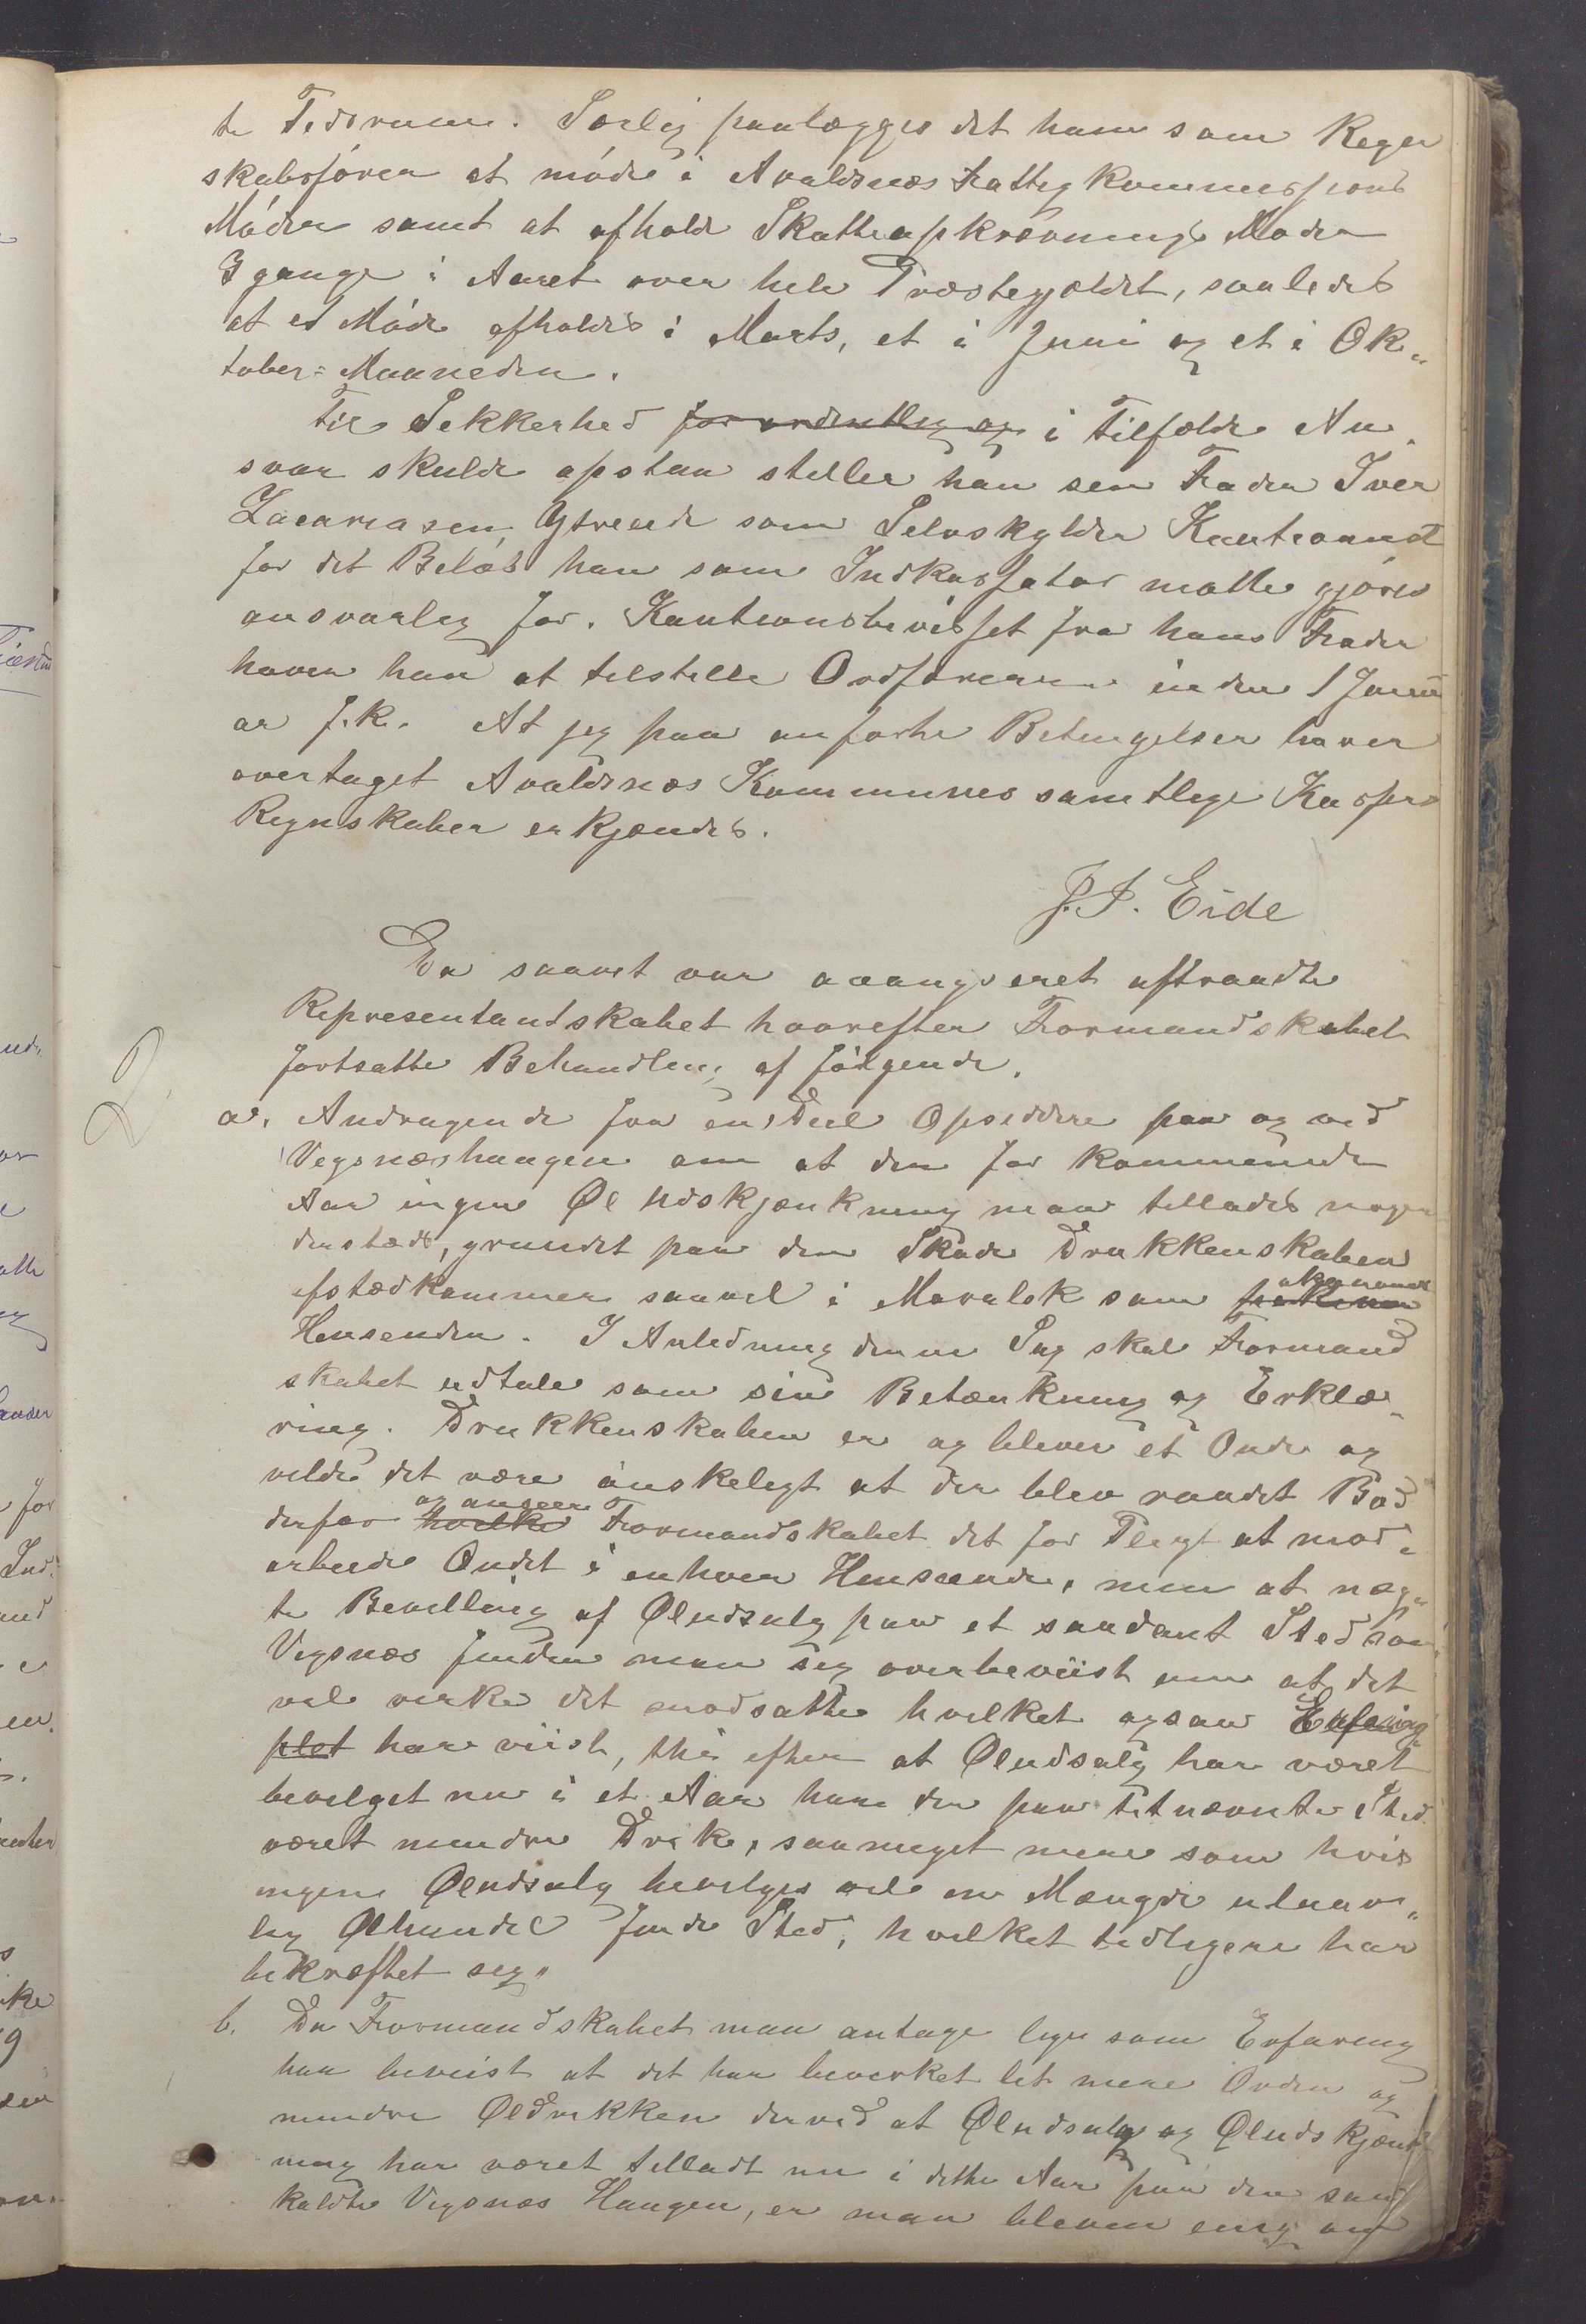 te Tidsrum. Særlig paalægges det ham som Regn
skabsfører at møde i Avaldsnes Fattigkommissions
Møder samt at afholde Skatteopkrævnings Møder
3 gange i Aaret over hele Præstegjeldet, saaledes
at et Møde afholdes i Marts, et i Juni og et i Ok„
tober=Maaneden.
Til Sikkerhed for ordentlig og i Tilfælde An„
svar skulde opstaa stiller han sin Fader Iver
Zacariasen Ytreeide som Selvskylder Kautionist
for det Beløb han som Indkassator maatte gjøres
ansvarlig for. Kautionsbeviset fra hans Fader
haver han at tilstille Ordføreren inden 1 Janu
ar f.k. At jeg paa anførte Betingelser haver
overtaget Avaldsnes Kommunes samtlige Kasser
Regnskaber erkjendes.
J. I. Eide
Da saavet var arangseret aftraadte
Representantskabet hvorefter Formandskabet
fortsatte Behandling af følgende.
2.
a. Andragende fra endeel Opsiddere paa og ved
Vigsneshaugen om at den for kommende
Aar ingen Øl udskjænkning maa tillades nogen
densteds, grundet paa den Skade Drukkenskaben
afstedkommer saavel i Moralsk som økonomisk
Hensenden. I Anledning denne Sag skal Formand
skabet udtale som sin Betænkning og Erklæ„
ring. Drukkenskaben er og bliver et Onde og
vilde det være ønskeligt at der blev raadet Bod
og anseer
derfor hvilke Formandskabet det for Pligt at mod„
arbeide Ondet i enhver Hensende, men at næg„
te Bevilling af Øludsalg paa et saadant Sted som
Vigsnes finder man sig overbeviist om at det
vil virke det modsatte hvilket ogsaa Erfaring
plet har viist, thi efter at Øludsalg har været
bevilget nu i et Aar har der paa titnævnte Sted
været mindre Drik, saameget mere som hvis
ingen Øludsalg bevilges vil en Mængde ulaav„
lig Ølhandel finde Sted, hvilket tidligere har
bekræftet sig.
b. Da Formandskabet maa antage lige som Erfaring
har beviist at det har bevirket lit mere Orden og
mindre Øldrikken derved at Øludsalg og Øludskjænk
ning har været tilladt nu i dette Aar paa den saa
kaldte Vigsnes Haugen, er man bleven enig om